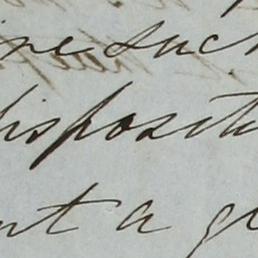 ine such
disposit
nt a g